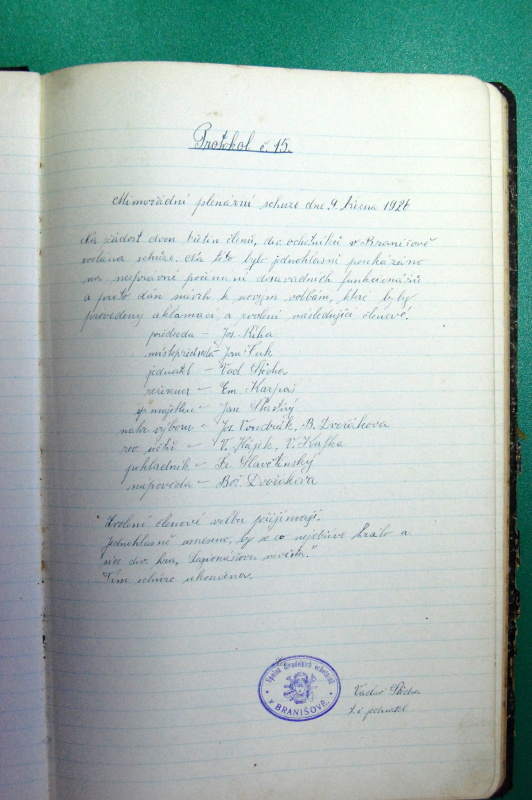 Protokol č. 15.
Mimořádní plenární schuze dne 9. března 1926
Na žádost dvou třetin členů, div. ochotníků v Branišově
svolána schůze. Na této bylo jednohlasní poukázáno
na nesprávné počínání dosavadních funkcionářů
a proto dán návrh k novým volbám, které byly
provedeny aklamací a zvoleni následující členové.
předseda – Jos. Říha
místopředseda – Jan
jednatel – Vád. Šícha
režiseur – Em. Karpaš
sp. majetku – Jan Šťastný
náhr. výboru – Jos. Vondrák, B. Dvořáková
rev. účtů – V. Hájek, V. Kafka
pokladník – Fr. Slavětínský
napověda – Bož. Dvořáková
Zvolení členové volbu přijímají.
Jednohlasně usneseno, by se co nejdříve hrálo a
sice div. hra „ nevěsta."
Tím schůze ukončena.
Spolek Divadelních ochotníků
V BRANIŠOVĚ.
Václav Šícha
t. č. jednatel